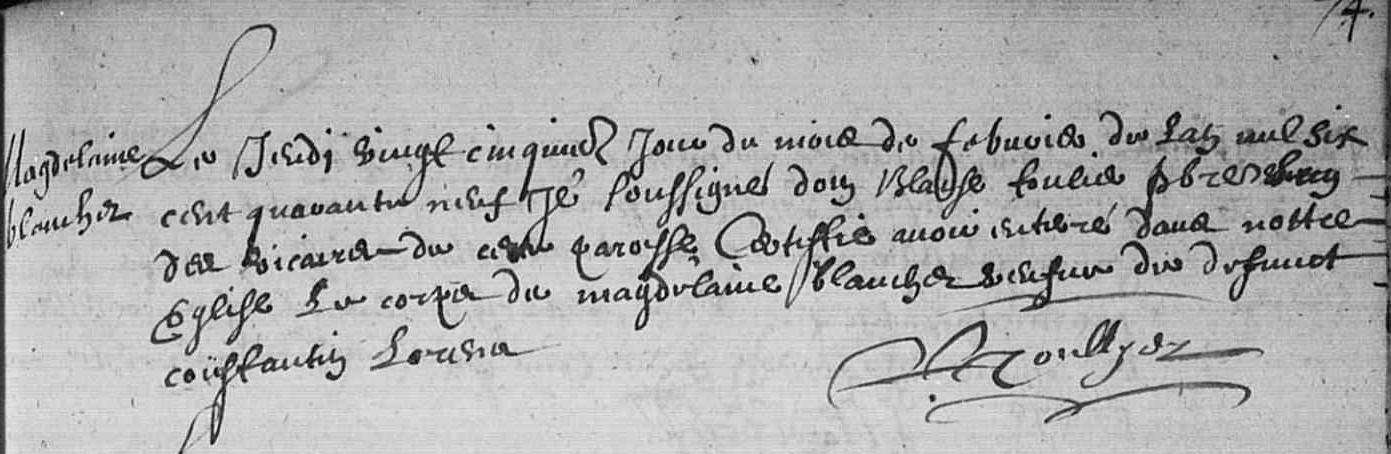 74.
Magdelaine
blancher
Le Jeudi vingt cinquie Jour du mois de febvrie de Lan mil six
cent quarante neuf Je soussigné dom Blaise foulie pbre
des vicaires de ceste paroisse Certiffie avoir enteré dans nostre
Eglise Le corps de magdelaine blancher veufve de defunct
coustantin